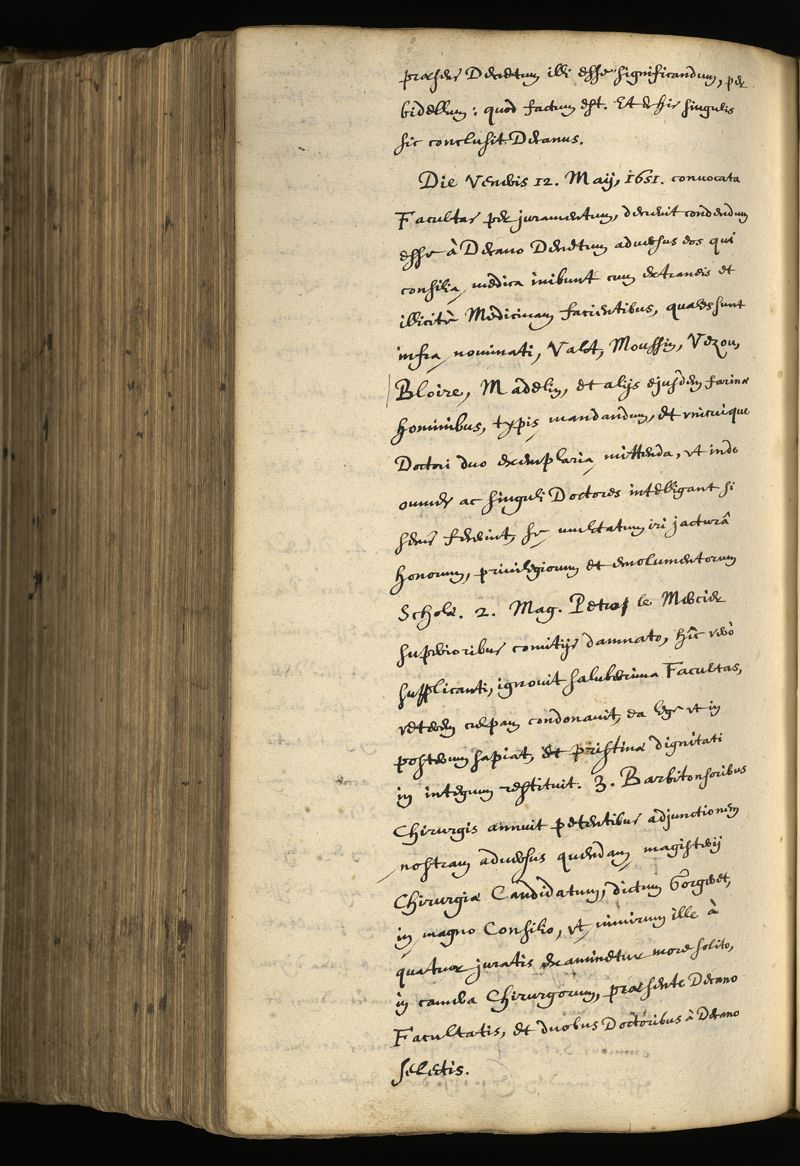 præsens Decretum illi esse significandum, per
bidellum: quod factum est. Et de his singulis
sic conclusit Decanus.
Die Veneris 12. Maij, 1651. convocata
Facultas per juramentum, decrevit condendum
esse à Decano Decretum adversus eos qui
consilia medica inibunt cum extraneis et
illicitè Medicinam facientibus, quales sunt
infra nominati, Valot, Moussin, Vezou,
Bloire, Madelin, et alijs ejusdem farinæ
hominibus, typis mandandum, et unicuique
Doctori duo exemplaria mittenda, ut inde
omnes ac singuli Doctores intelligant si
secus fecerint, se mulctatum iri jacturâ
honorum, privilegiorum et emolumentorum
Scholæ. 2. Mag. Petro le Mercier
superioribus comitijs damnato, hîc verò
supplicanti, ignovit saluberrima Facultas,
veterem culpam condonavit, ea lege ut in
posterum sapiat, et pristinæ dignitati
in integrum restituit. 3. Barbitonsoribus
Chirurgis annuit petentibus adjunctionem
nostram adversus quendam magisterij
Chirurgiæ Candidatum, dictum Gorgeret,
in magno Consilio, ut nimirum ille à
quatuor juratis examinetur more solito,
in camera Chirurgorum, præsente Decano
Facultatis, et duobus Doctoribus à Decano
selectis.